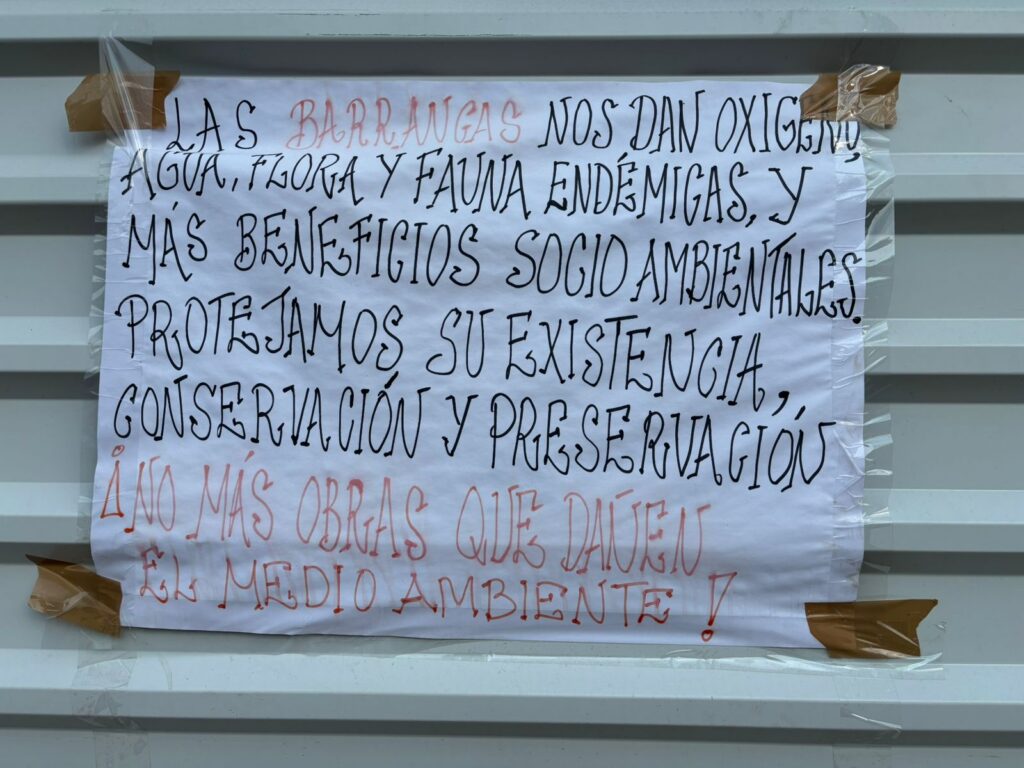 LAS BARRANCAS NOS DAN OXIGENO,
AGUA, FLORA Y FAUNA ENDÉMICAS, Y
MÁS BENEFICIOS SOCIO AMBIENTALES.
PROTEJAMOS SU EXISTENCIA,
CONSERVACIÓN Y PRESERVACIÓN
¡NO MÁS OBRAS QUE DAÑEN
EL MEDIO AMBIENTE!